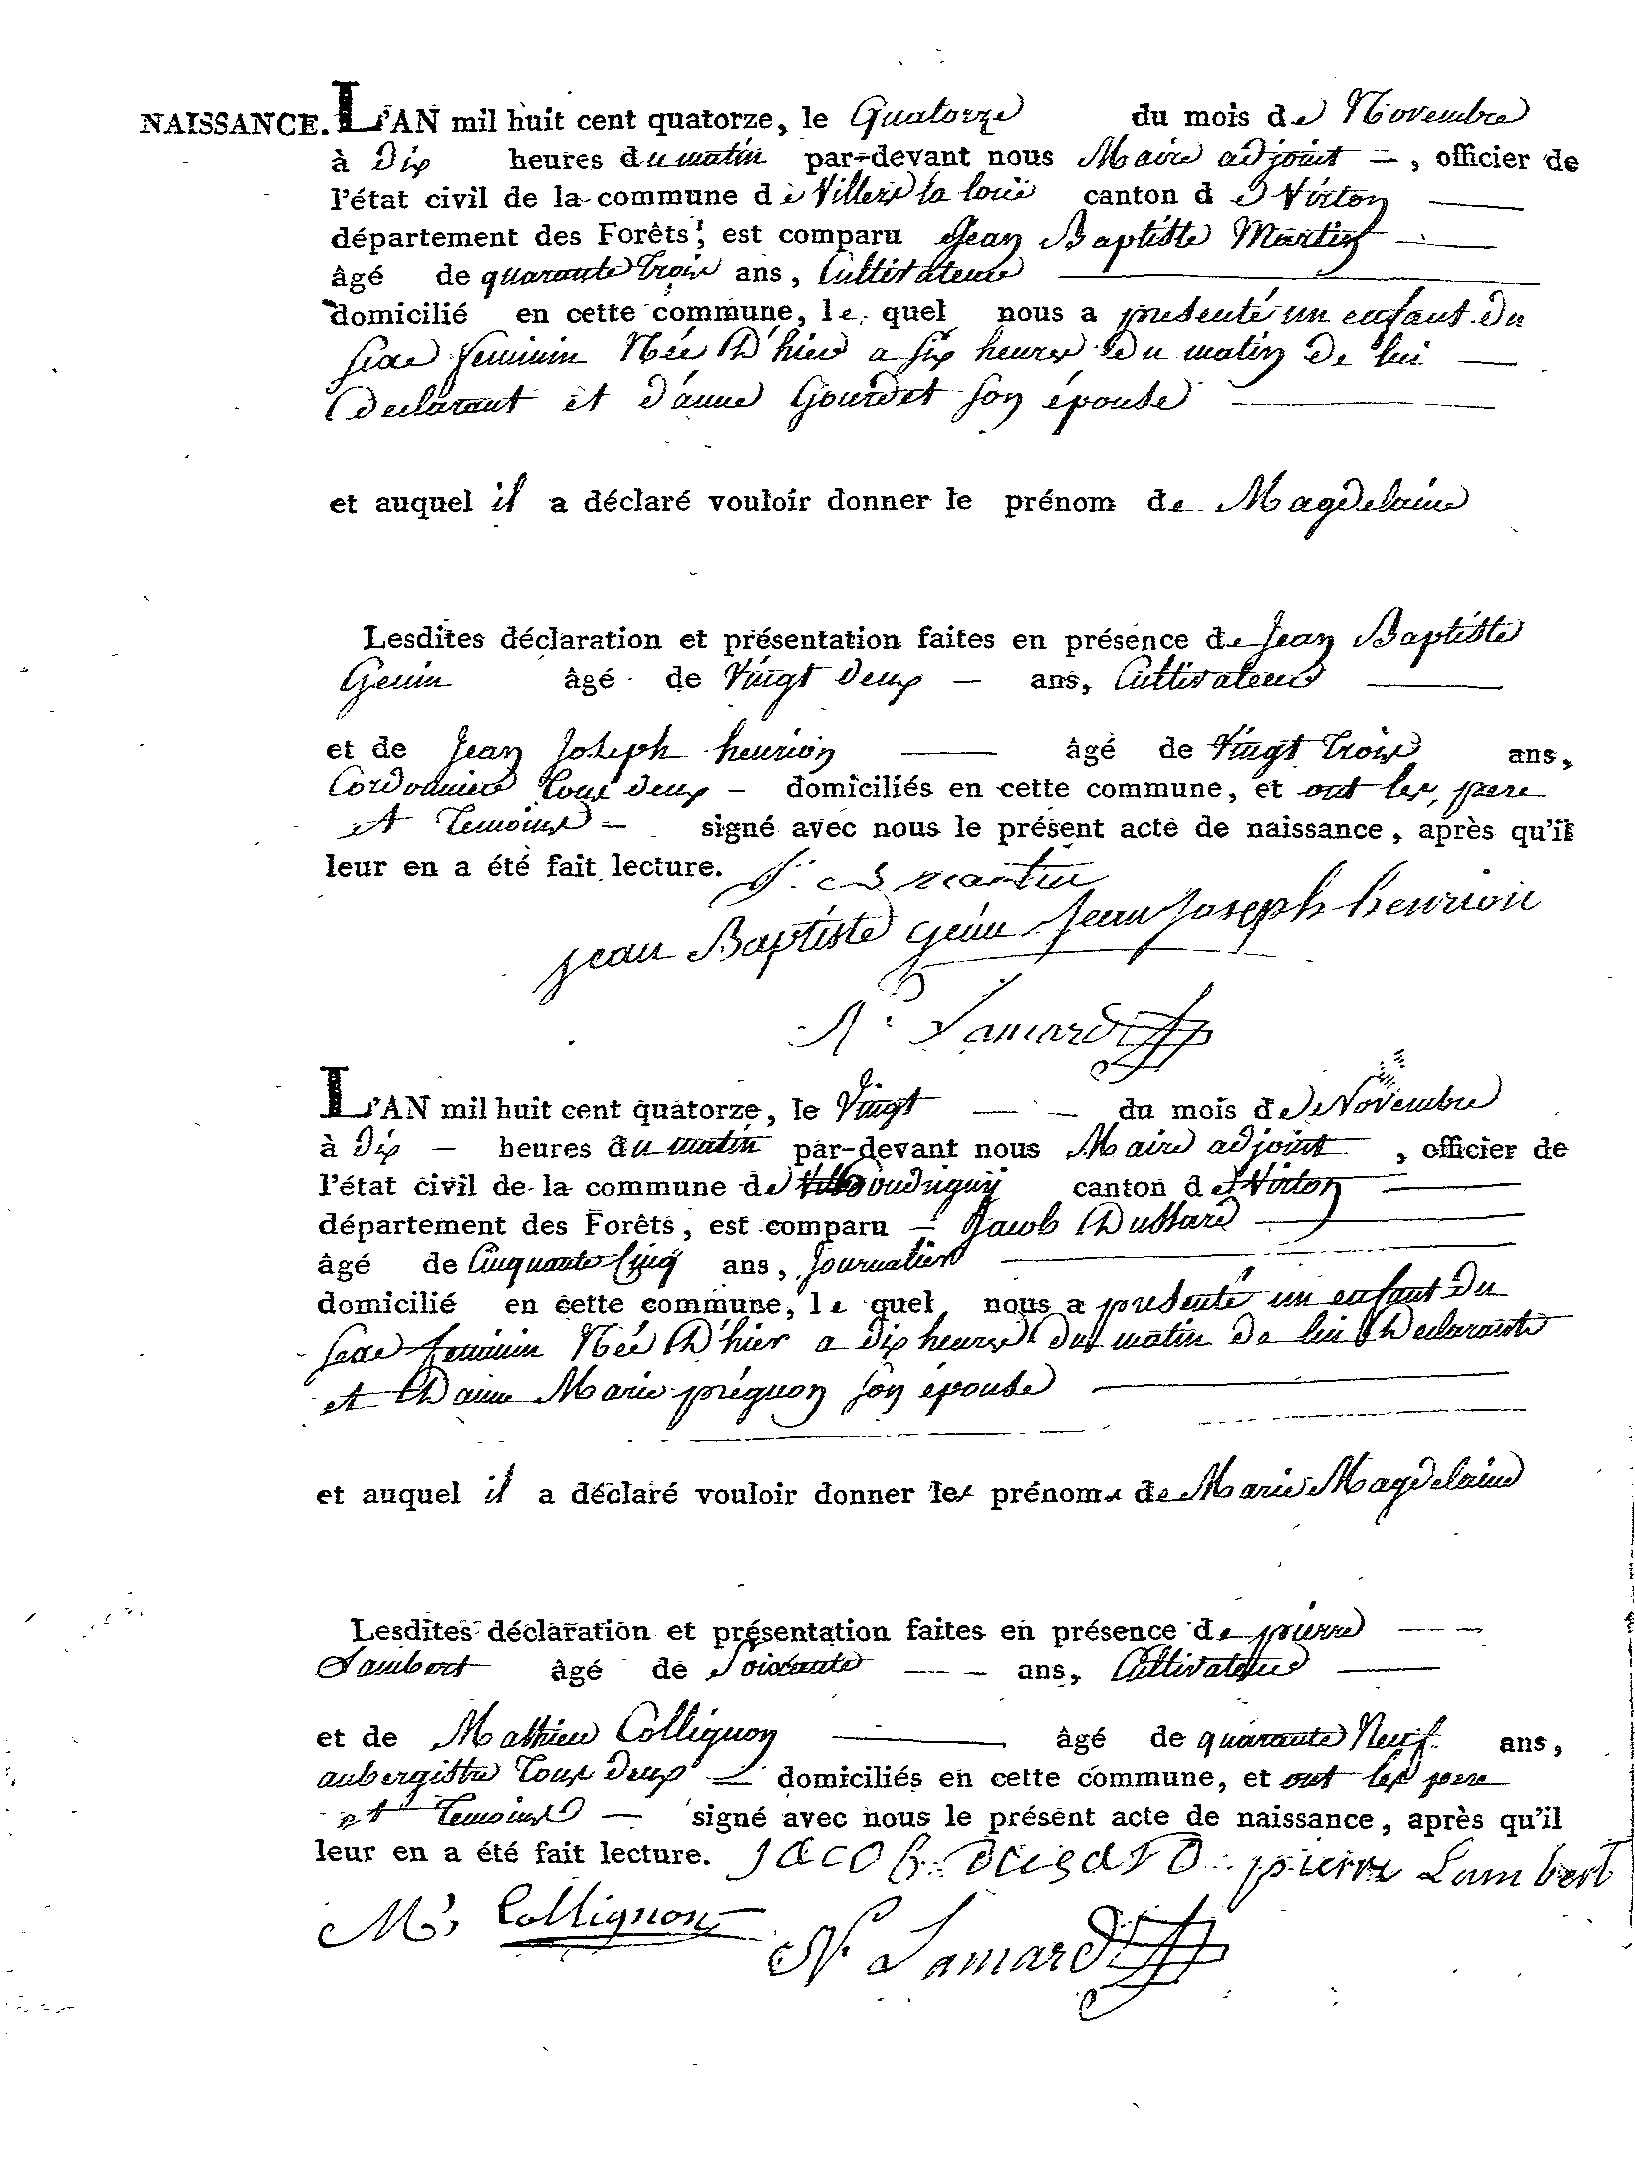 NAISSANCE. L'AN mil huit cent quatorze, le Quatorze du mois de Novembre
à Dix heures du matin par-devant nous Maire adjoint —, officier de
l'état civil de la commune de Villers la loüe canton de Virton
département des Forêts, est comparu Jean Baptiste Martin
âgé de quarante Trois ans, Cultivateur
domicilié en cette commune, le quel nous a presenté un enfant du
sexe feminin Née D'hier a six heures Du matin De lui
Declarant et d'anne Gourdet son épouse
et auquel il a déclaré vouloir donner le prénom de Magdelaine
Lesdites déclaration et présentation faites en présence de Jean Baptiste
Genin âgé de Vingt deux — ans, Cultivateur
et de Jean Joseph henrion âgé de Vingt Trois ans,
Cordonnier Tous deux — domiciliés en cette commune, et ont les pere
et Temoins — signé avec nous le présent acte de naissance, après qu'il
leur en a été fait lecture. J. B martin
jean Baptiste genin Jean Joseph henrion
N. Lamard
L'AN mil huit cent quatorze, le Vingt — du mois de Novembre
à Dix — heures du matin par-devant nous Maire adjoint, officier de
l'état civil de la commune de houdrigny canton de Virton
département des Forêts, est comparu — Jacob Dussard
âgé de Cinquante Cinq ans, Journalier
domicilié en cette commune, le quel nous a presenté un enfant Du
sexe feminin Née D'hier a dix heures Du matin De lui Declarant
et D'anne Marie prignon son épouse
et auquel il a déclaré vouloir donner les prénoms de Marie Magdelaine
Lesdites déclaration et présentation faites en présence de pierre
Lambert âgé de Soixante — ans, Cultivateur
et de Mathieu Collignon âgé de quarante Neuf ans,
aubergiste Tous Deux — domiciliés en cette commune, et ont les pere
et Temoins — signé avec nous le présent acte de naissance, après qu'il
leur en a été fait lecture. jacob dusard pierre Lambert
M. Collignon N. Lamard